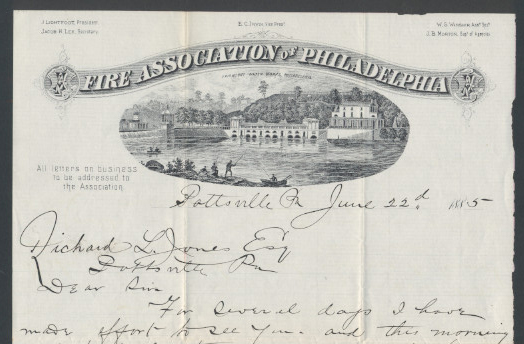 J. LIGHTFOOT, President.
JACOB H. LEX, Secretary.
E. C. IRVIN, Vice Prest.
W. G. Vice Sec'y
J. B. Supt of Agencies
FIRE ASSOCIATION OF PHILADELPHIA
All letters on business
to be addressed to
the Association.
Pottsville Pa June 22d 1885
Richard L. Jones Esq
Pottsville Pa
Dear Sir
For several days I have
made effort to see you. and this morning